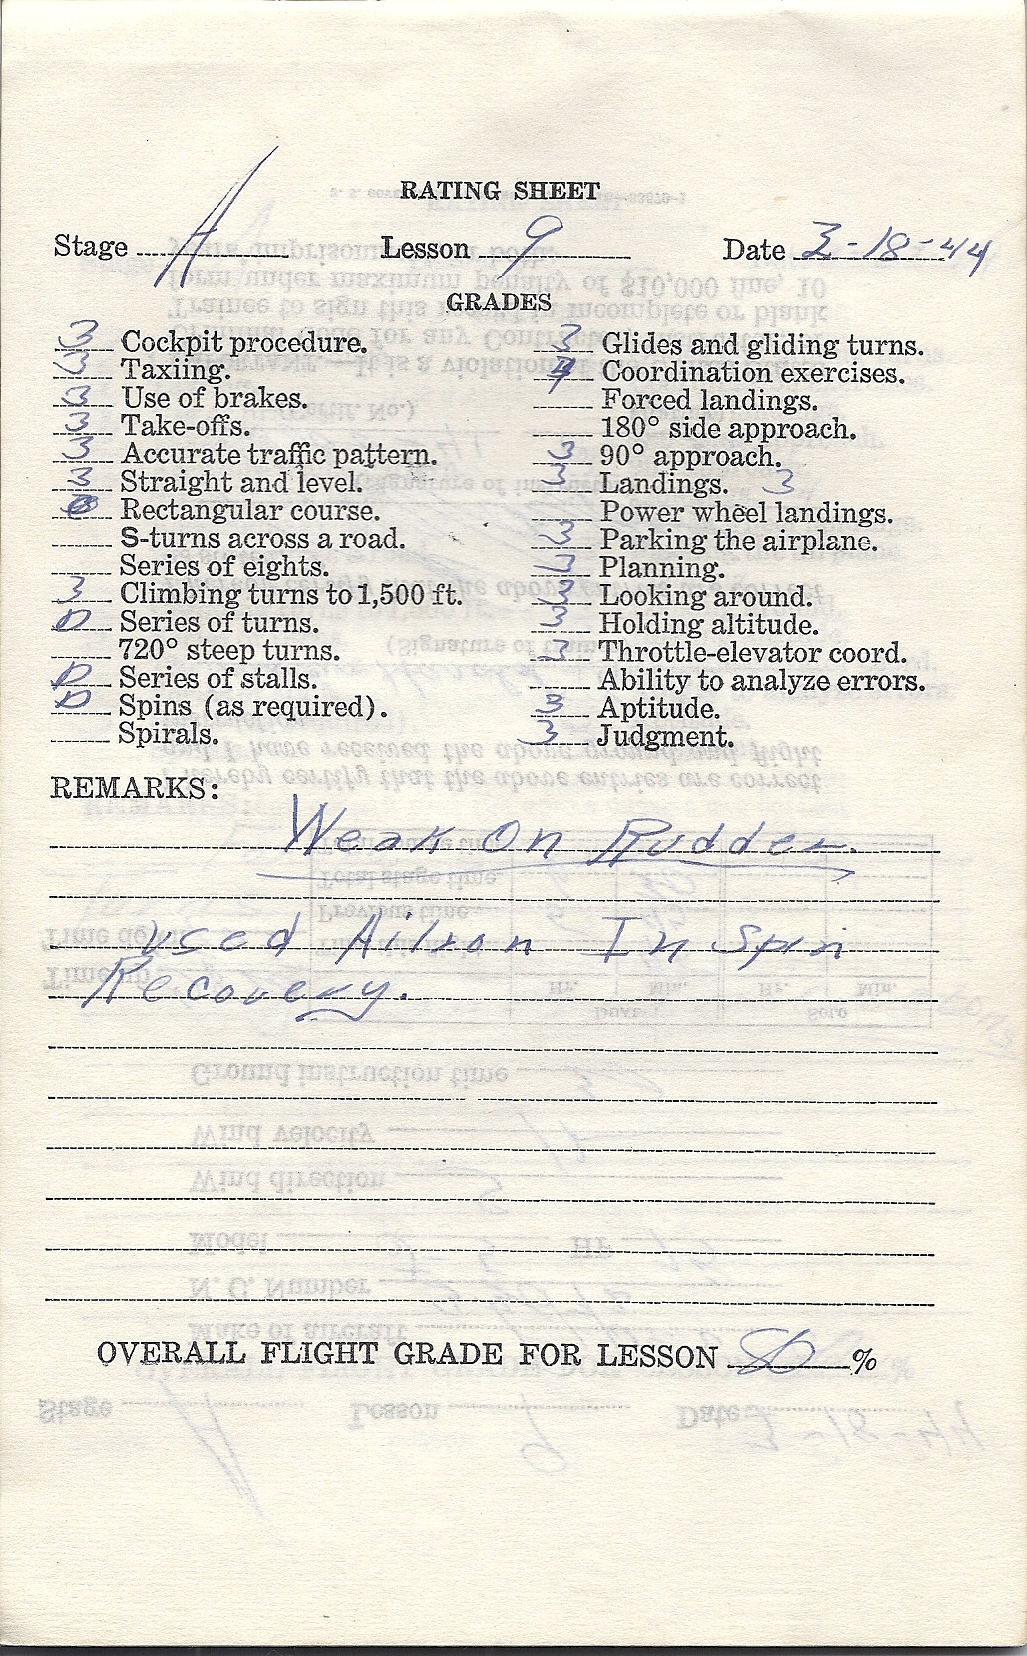 RATING SHEET
Stage A Lesson 9 Date 3-18-44
GRADES
3 Cockpit procedure.
3 Taxiing.
3 Use of brakes.
3 Take-offs.
3 Accurate traffic pattern.
3 Straight and level.
Rectangular course.
S-turns across a road.
Series of eights.
3 Climbing turns to 1,500 ft.
D Series of turns.
720° steep turns.
D Series of stalls.
D Spins (as required).
Spirals.
3 Glides and gliding turns.
4 Coordination exercises.
Forced landings.
180° side approach.
3 90° approach.
3 Landings. 3
Power wheel landings.
3 Parking the airplane.
3 Planning.
3 Looking around.
3 Holding altitude.
3 Throttle-elevator coord.
Ability to analyze errors.
3 Aptitude.
3 Judgment.
REMARKS:
Weak On Rudder.
Used Ailron In Spin
Recovery.
OVERALL FLIGHT GRADE FOR LESSON 80 %